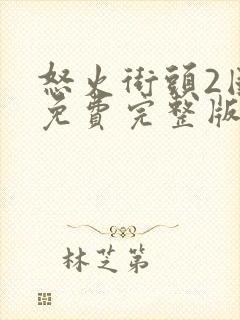 怒火街頭2国
免費完整版
林芝第